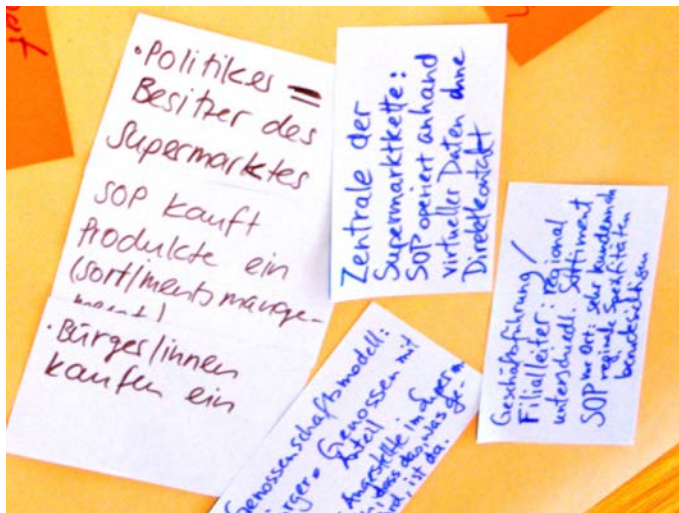 • Politiker =
Besitzer des
Supermarktes
SOP kauft
Produkte ein
(sortimentsmanage-
ment)
• Bürger/innen
kaufen ein
Zentrale der
Supermarktkette:
SOP operiert anhand
virtueller Daten ohne
Direktkontakt
Geschäftsführung /
Filialleiter: regional
unterschiedl. Sortiment
SOP vor Ort: sehr kundennah
regionale Spezifitäten
berücksichtigen
Genossenschaftsmodell:
Genossen mit
Anteil
Angestellte im Superm
dass das, was ge-
ist da.